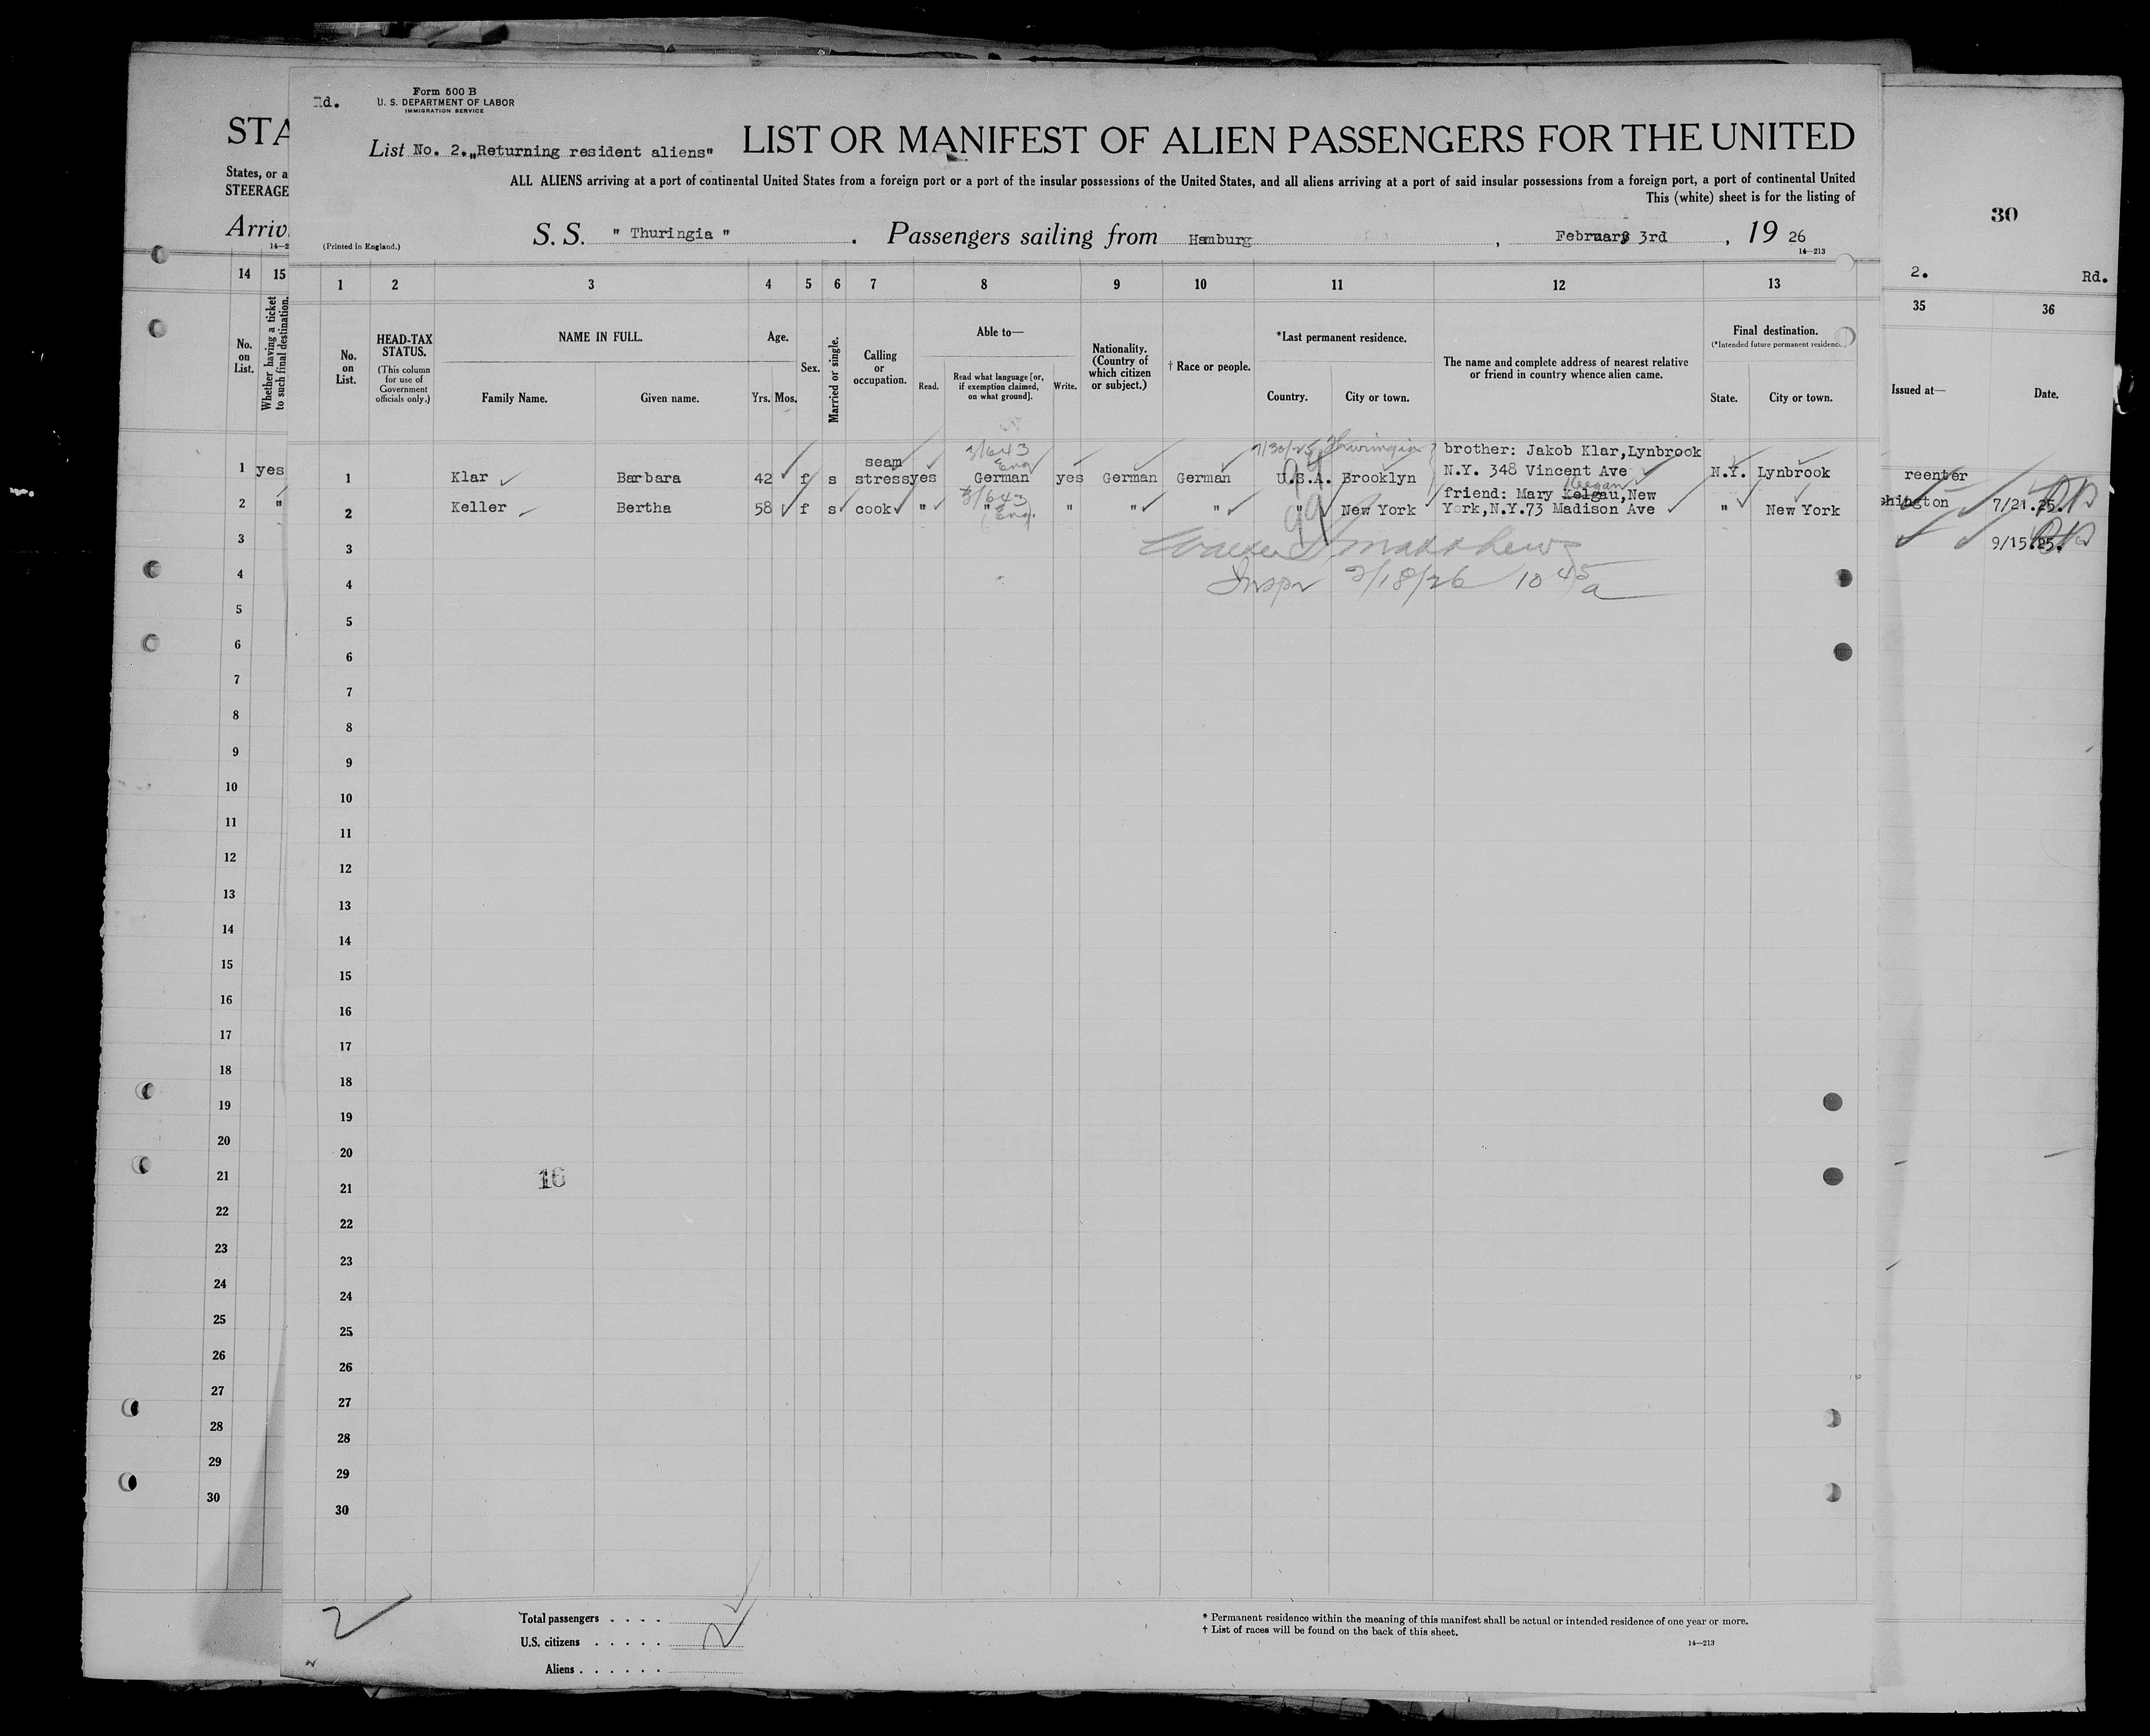 Rd.
Form 500 B
U. S. DEPARTMENT OF LABOR
IMMIGRATION SERVICE
List No. 2. „Returning resident aliens"
LIST OR MANIFEST OF ALIEN PASSENGERS FOR THE UNITED
ALL ALIENS arriving at a port of continental United States from a foreign port or a port of the insular possessions of the United States, and all aliens arriving at a port of said insular possessions from a foreign port, a port of continental United
This (white) sheet is for the listing of
(Printed in England.)
S. S. " Thuringia " . Passengers sailing from Hamburg , February 3rd , 19 26
14—213
STA
States, or a
STEERAGE
Arriv
14—2
30
2. Rd.
14 15
No. on List.
Whether having a ticket to such final destination.
1 2 3 4 5 6 7 8 9 10 11 12 13
35 36
No. on List.
HEAD-TAX STATUS.
(This column for use of Government officials only.)
NAME IN FULL.
Family Name. Given name.
Age.
Yrs. Mos.
Sex.
Married or single.
Calling or occupation.
Able to—
Read. Read what language [or, if exemption claimed, on what ground]. Write.
Nationality. (Country of which citizen or subject.)
† Race or people.
*Last permanent residence.
Country. City or town.
The name and complete address of nearest relative or friend in country whence alien came.
Final destination.
(*Intended future permanent residence.)
State. City or town.
Issued at— Date.
3/643 7/30/25 Thuringia brother: Jakob Klar,Lynbrook
seam Eng
1 yes 1 Klar Barbara 42 f s stress yes German yes German German U.S.A. Brooklyn N.Y. 348 Vincent Ave N.Y. Lynbrook reenter
3/643 Keegan
friend: Mary Kelgau,New
2 " 2 Keller Bertha 58 f s cook " " Eng. " " " " New York York,N.Y.73 Madison Ave " New York hington 7/21.25.
9/15.25.
Matthews
Inspr 2/18/26 10 45 a
3 3
4 4
5 5
6 6
7 7
8 8
9 9
10 10
11 11
12 12
13 13
14 14
15 15
16 16
17 17
18 18
19 19
20 20
21 21
16
22 22
23 23
24 24
25 25
26 26
27 27
28 28
29 29
30 30
2
Total passengers . . . .
U.S. citizens . . . . . 2
Aliens . . . . . .
* Permanent residence within the meaning of this manifest shall be actual or intended residence of one year or more.
† List of races will be found on the back of this sheet.
14—213